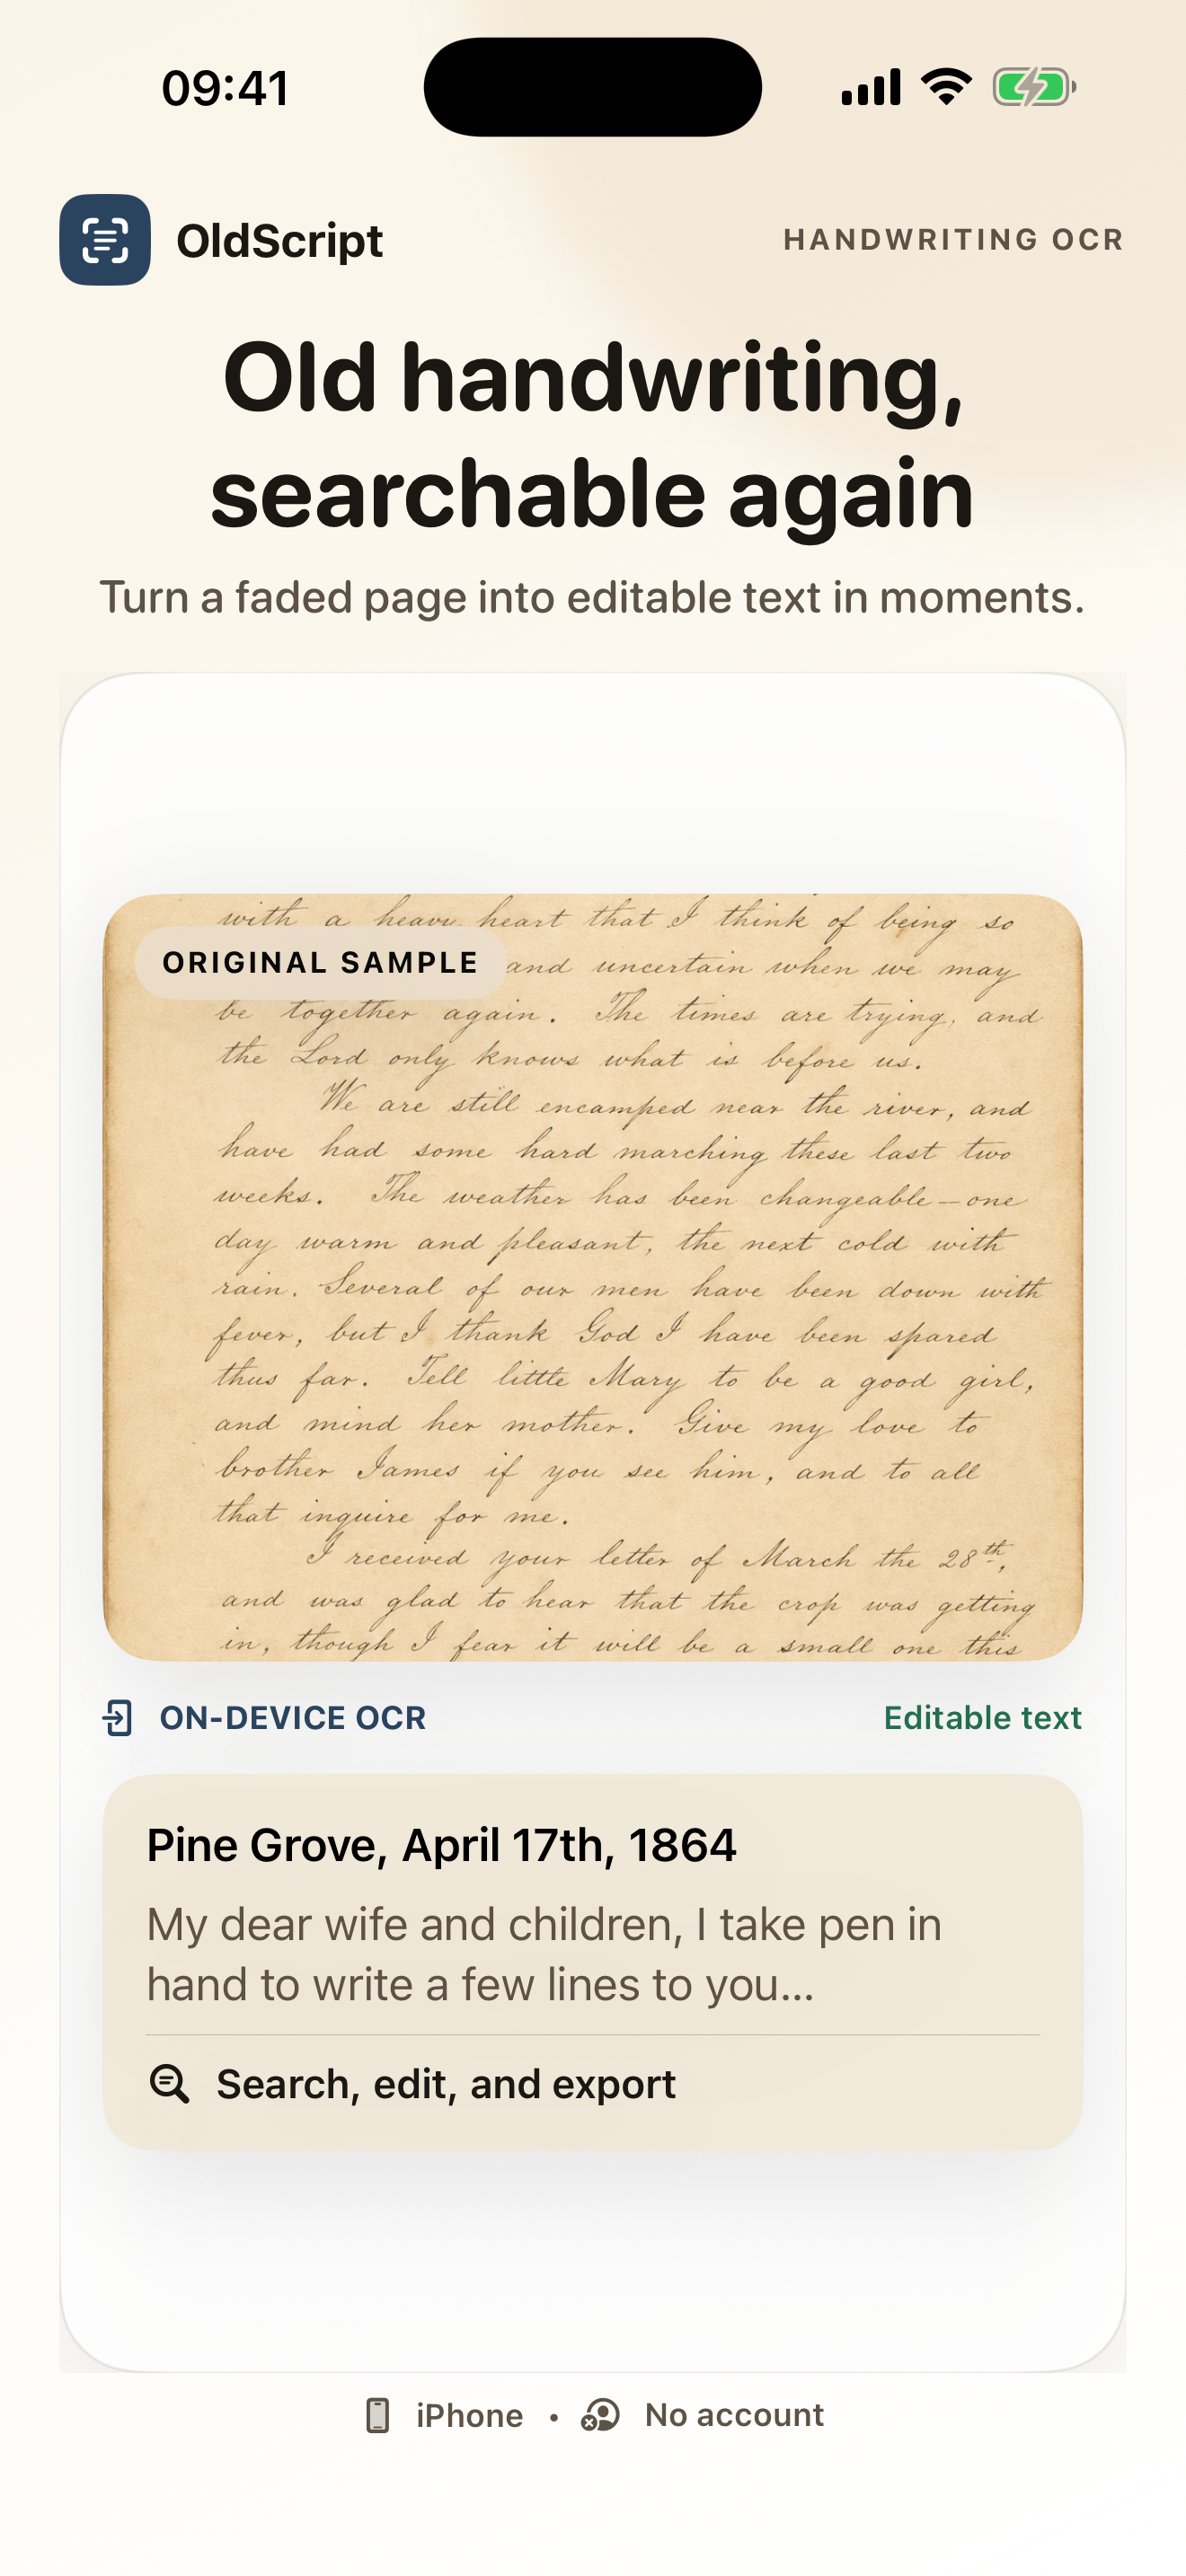 09:41
OldScript
HANDWRITING OCR
Old handwriting,
searchable again
Turn a faded page into editable text in moments.
with a heavy heart that I think of being so
ORIGINAL SAMPLE
and uncertain when we may
be together again. The times are trying, and
the Lord only knows what is before us.
We are still encamped near the river, and
have had some hard marching these last two
weeks. The weather has been changeable—one
day warm and pleasant, the next cold with
rain. Several of our men have been down with
fever, but I thank God I have been spared
thus far. Tell little Mary to be a good girl,
and mind her mother. Give my love to
brother James if you see him, and to all
that inquire for me.
I received your letter of March the 28th,
and was glad to hear that the crop was getting
in, though I fear it will be a small one this
ON-DEVICE OCR
Editable text
Pine Grove, April 17th, 1864
My dear wife and children, I take pen in
hand to write a few lines to you...
Search, edit, and export
iPhone • No account